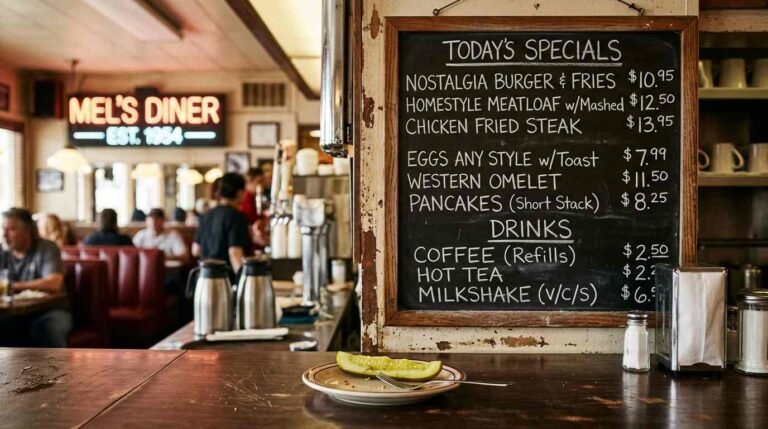 MEL'S DINER
EST. 1954
TODAY'S SPECIALS
NOSTALGIA BURGER & FRIES $10.95
HOMESTYLE MEATLOAF w/MASHED $12.50
CHICKEN FRIED STEAK $13.95
EGGS ANY STYLE w/TOAST $7.99
WESTERN OMELET $11.50
PANCAKES (Short Stack) $8.25
DRINKS
COFFEE (Refills) $2.50
HOT TEA
MILKSHAKE (V/C/S)